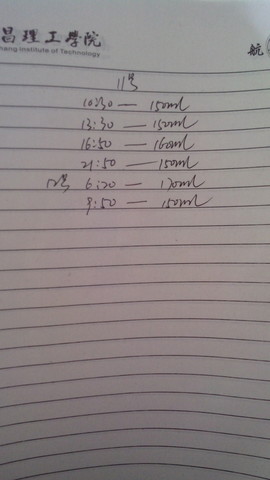 昌理工學院
hang Institute of Technology
航
11号
10:30 — 150ml
13:30 — 150ml
16:50 — 160ml
21:50 — 150ml
12号 6:20 — 170ml
9:50 — 150ml